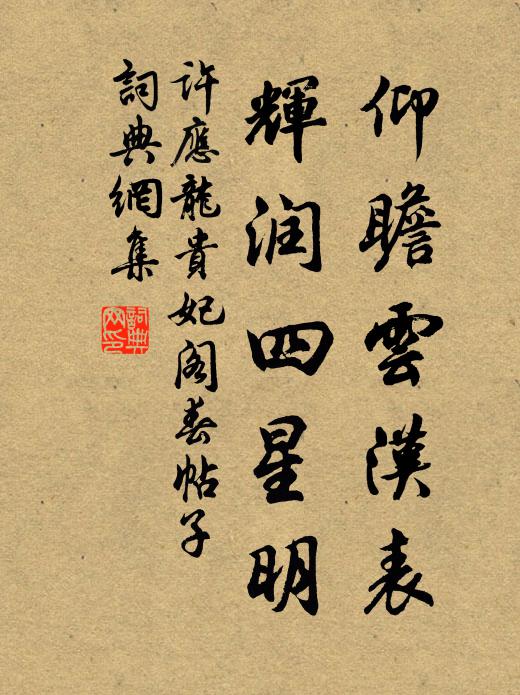 仰瞻雲漢表
輝润四星明
許應龍貴妃阁春帖子
詞典網集
詞典网印